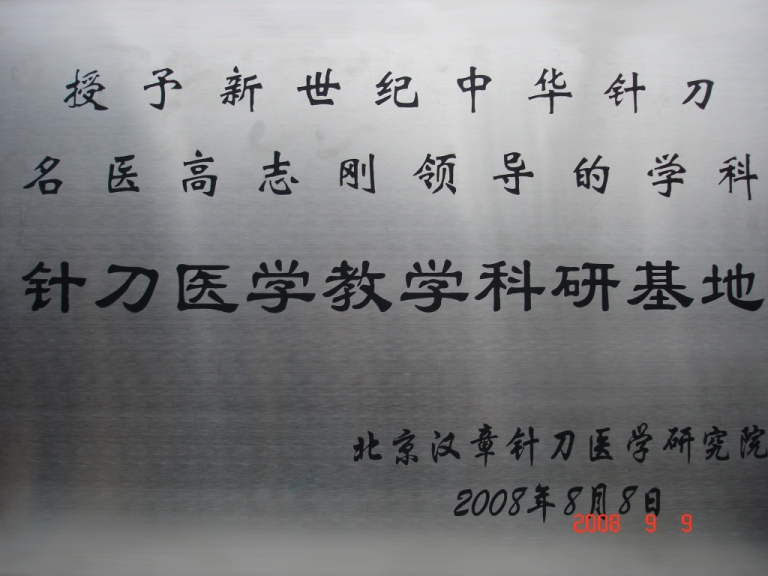 授予新世纪中华针刀
名医高志刚领导的学科
针刀医学教学科研基地
北京汉章针刀医学研究院
2008年8月8日
2008 9 9